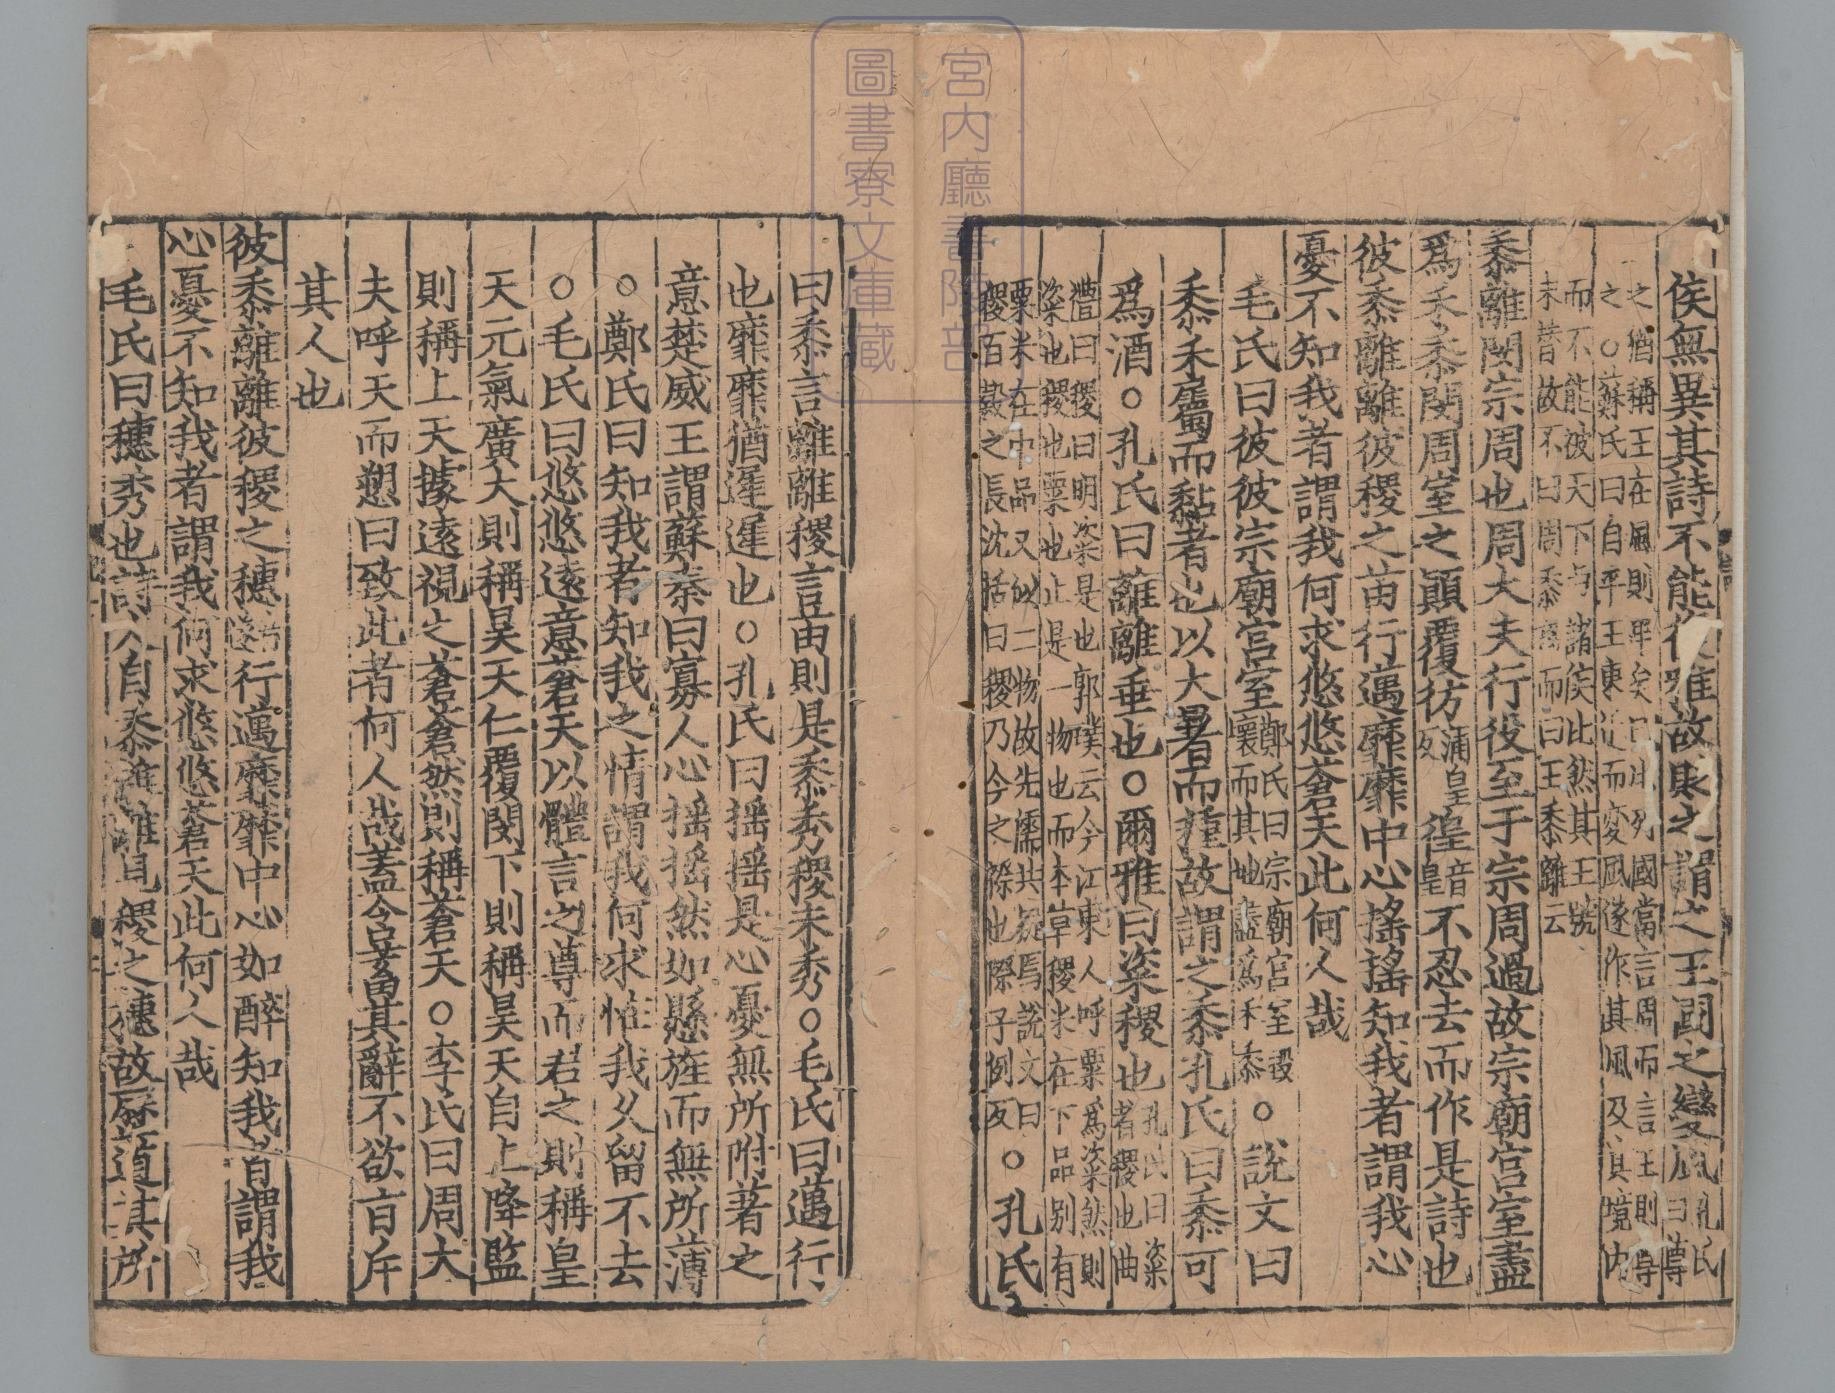 侯無異其詩不能復雅故貶之謂之王國之變風孔氏曰尊
之猶稱王在風則卑矣 國當言周而言王則尊
之○蘇氏曰自平王東遷而變風遂作其風及其境內
而不能被天下與諸侯比然其王號
未替故不曰周黍離而曰王黍離云
黍離閔宗周也周大夫行役至于宗周過故宗廟宮室盡
爲禾黍閔周室之顚覆彷蒲皇反徨音皇不忍去而作是詩也
彼黍離離彼稷之苗行邁靡靡中心搖搖知我者謂我心
憂不知我者謂我何求悠悠蒼天此何人哉
毛氏曰彼彼宗廟宮室鄭氏曰宗廟宮室毀壞而其地盡爲禾黍○說文曰
黍禾屬而黏者也以大暑而種故謂之黍孔氏曰黍可
爲酒○孔氏曰離離垂也○爾雅曰粢稷也孔氏曰粢者稷也曲
禮曰稷曰明粢是也郭璞云今江東人呼粟爲粢然則
粢也稷也粟也止是一物也而本草稷米在下品別有
粟米在中品又似二物故先儒共疑焉說文曰
稷百穀之長沈括曰稷乃今之穄也穄子例反○孔氏
曰黍言離離稷言苗則是黍秀稷未秀○毛氏曰邁行
也靡靡猶遲遲也○孔氏曰搖搖是心憂無所附著之
意楚威王謂蘇秦曰寡人心搖搖然如懸旌而無所薄
○鄭氏曰知我者知我之情謂我何求怪我久留不去
○毛氏曰悠悠遠意蒼天以體言之尊而君之則稱皇
天元氣廣大則稱昊天仁覆閔下則稱旻天自上降監
則稱上天據遠視之蒼蒼然則稱蒼天○李氏曰周大
夫呼天而愬曰致此者何人哉蓋含蓄其辭不欲盲斥
其人也
彼黍離離彼稷之穗行邁靡靡中心如醉知我者謂我
心憂不知我者謂我何求悠悠蒼天此何人哉
毛氏曰穗秀也詩人自黍離離見稷之穗故歷道其所
宮內廳書陵部
圖書寮文庫藏